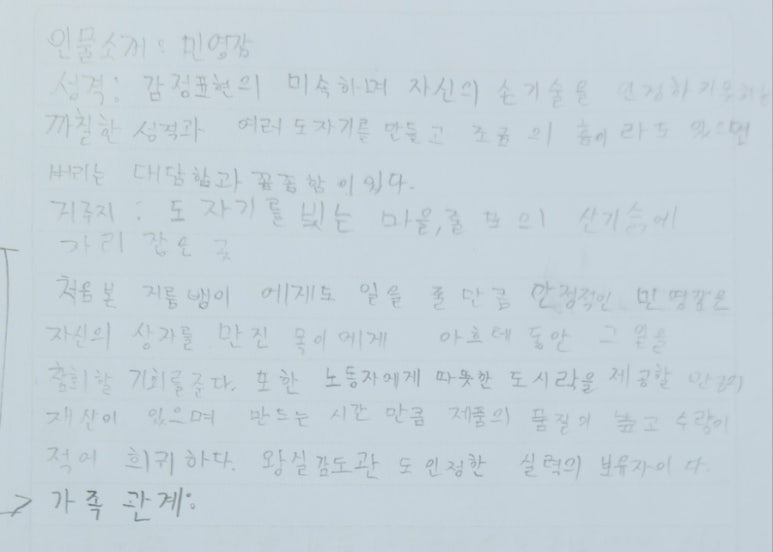 인물소개 : 민영감
성격: 감정표현의 미숙하며 자신의 손기술을 인정하지못하는
까칠한 성격과 여러 도자기를 만들고 조금의 흠이라도 있으면
버리는 대담함과 꼼꼼함이 있다.
거주지 : 도자기를 빚는 마을, 줄포의 산기슭에
자리 잡은 곳
처음본 지름뱅이 에게도 일을 줄만큼 인정적인 민영감은
자신의 상자를 만진 목이에게 아흐레 동안 그 일을
할 기회를준다. 또한 노동자에게 따뜻한 도시락을 제공할 만큼의
재산이 있으며 만드는 시간 만큼 제품의 품질이 높고 수락이
적어 희귀하다. 왕실감도관 도 인정한 실력의 보유자이다.
가족 관계: